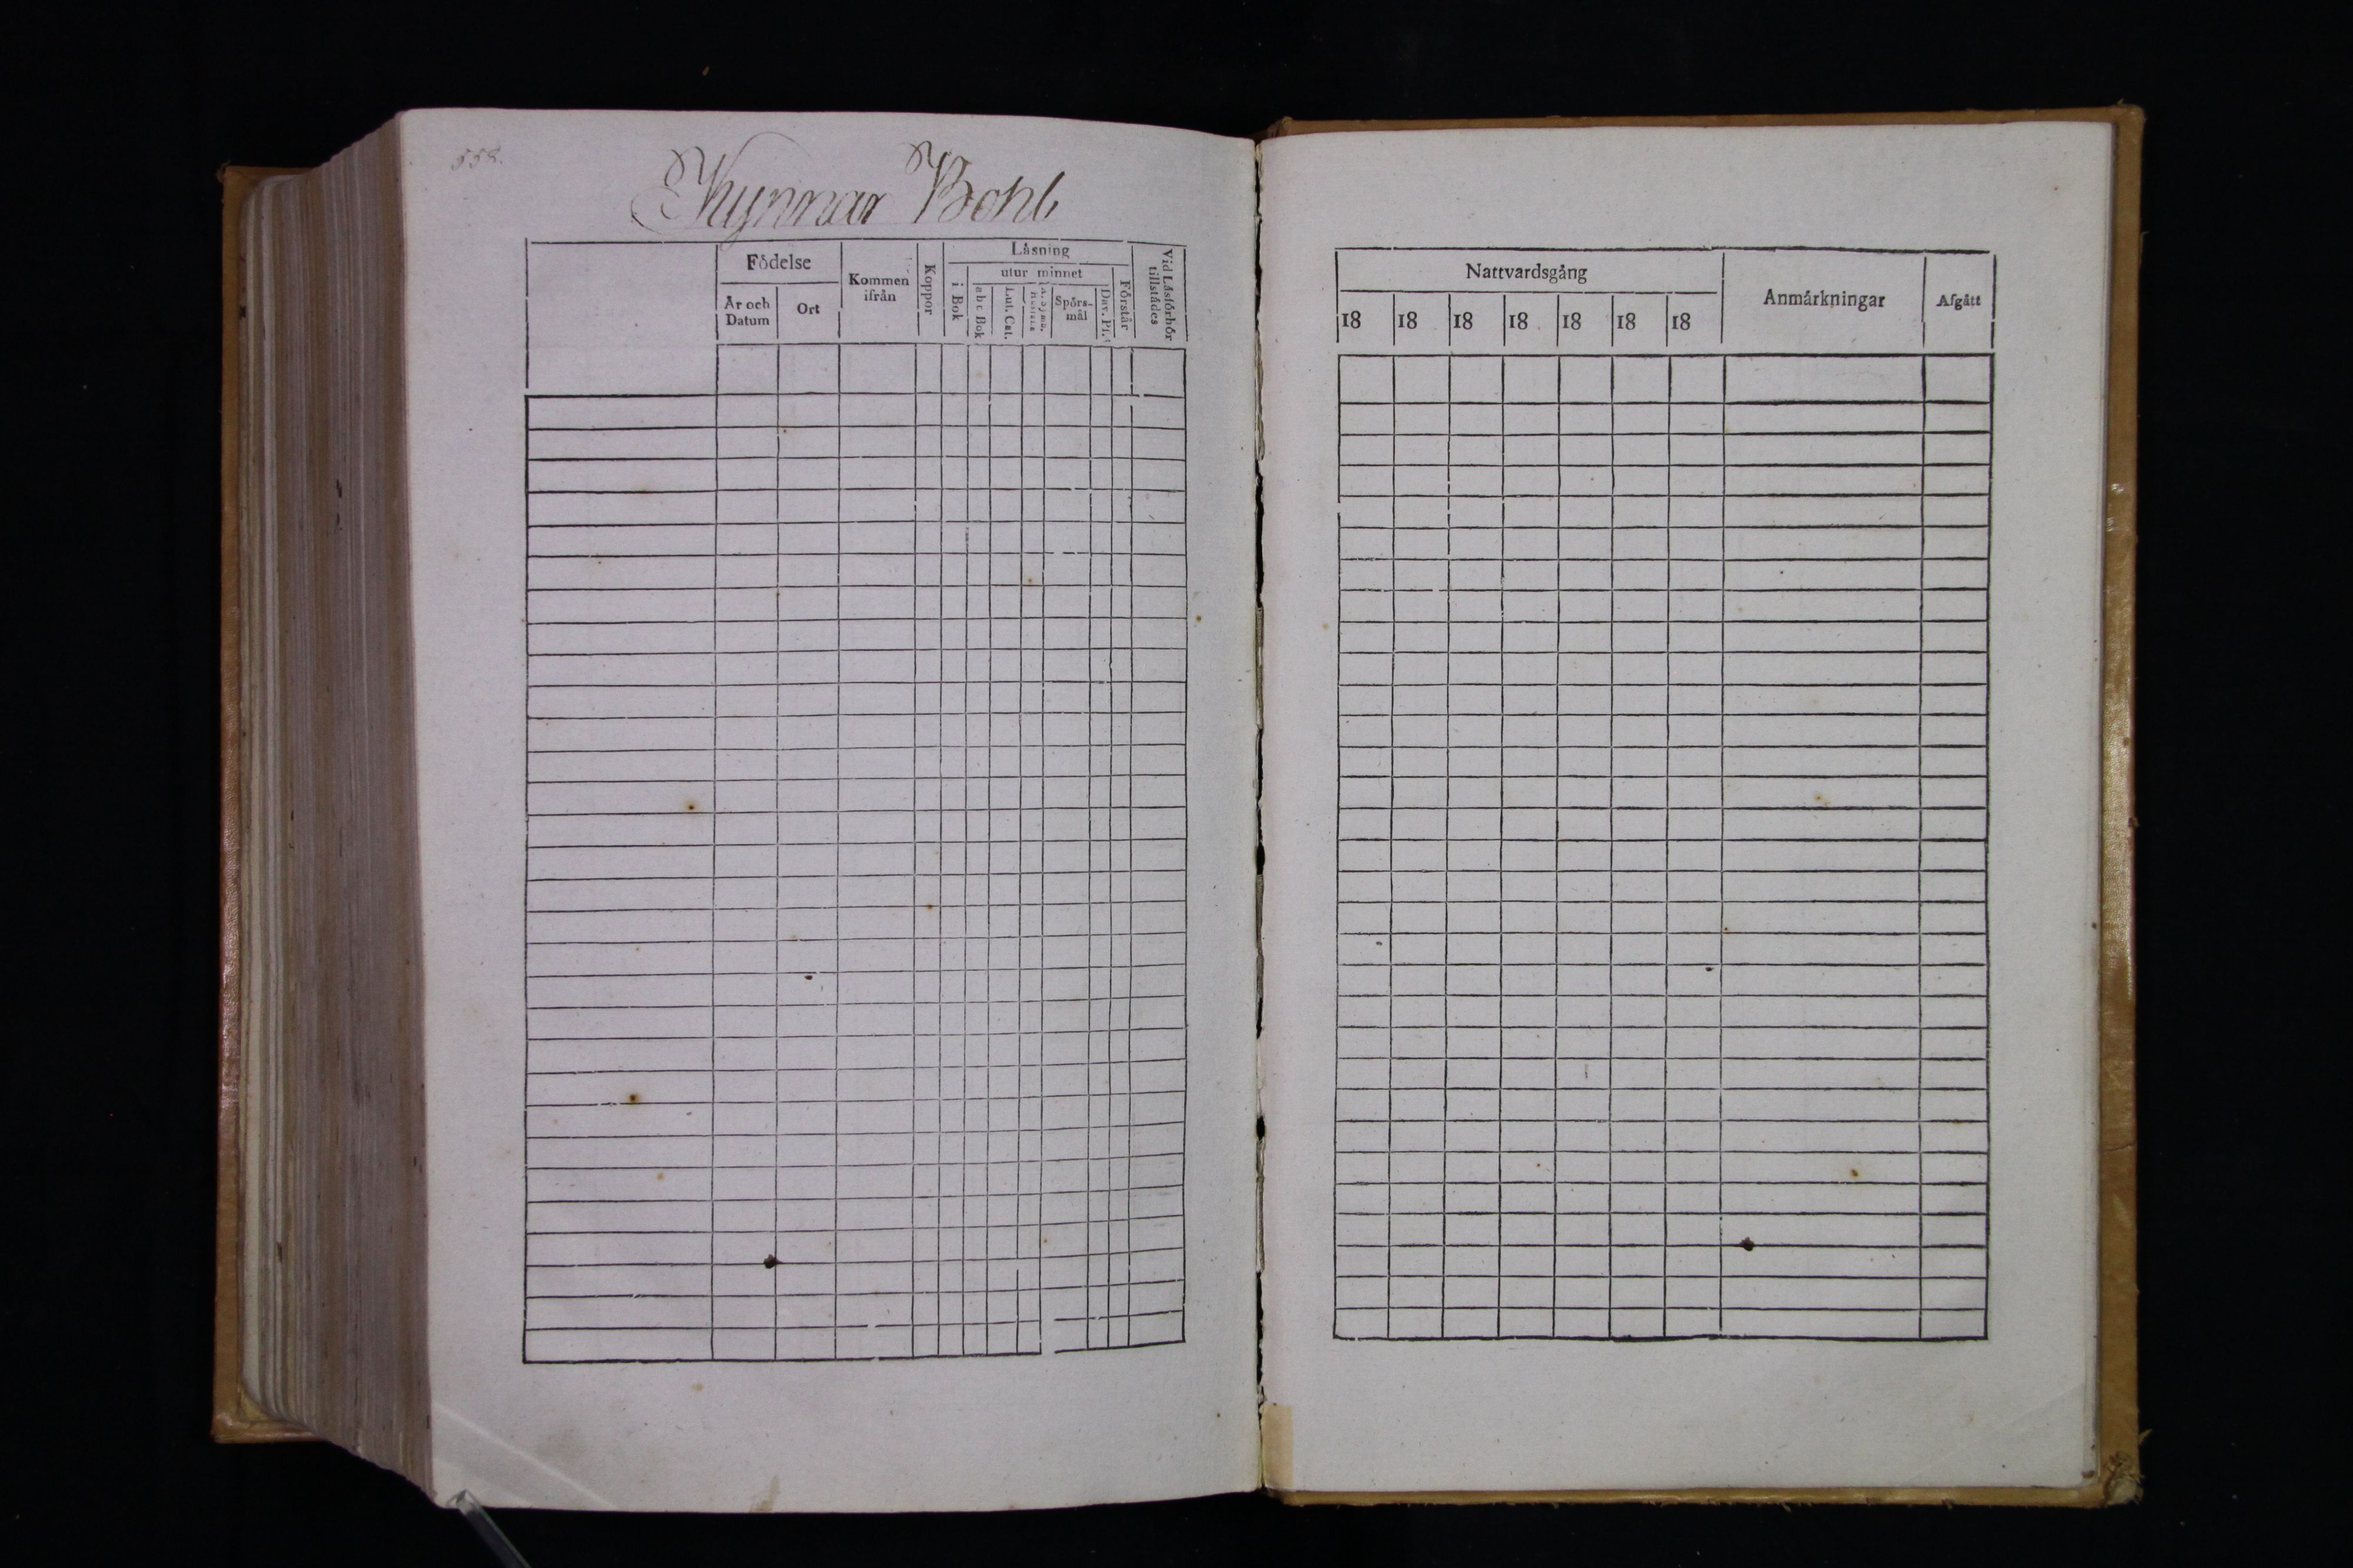 558.
Kynnar Bohl
Födelse
År och Datum
Ort
Kommen ifrån
Koppor
Läsning
i Bok
utur minnet
abc Bok
Lut. Cat.
Spörs-mål
Dav. Ps.
Förstår
Vid Läsförhör tillstädes
Nattvardsgång
18 18 18 18 18 18 18
Anmärkningar
Afgått